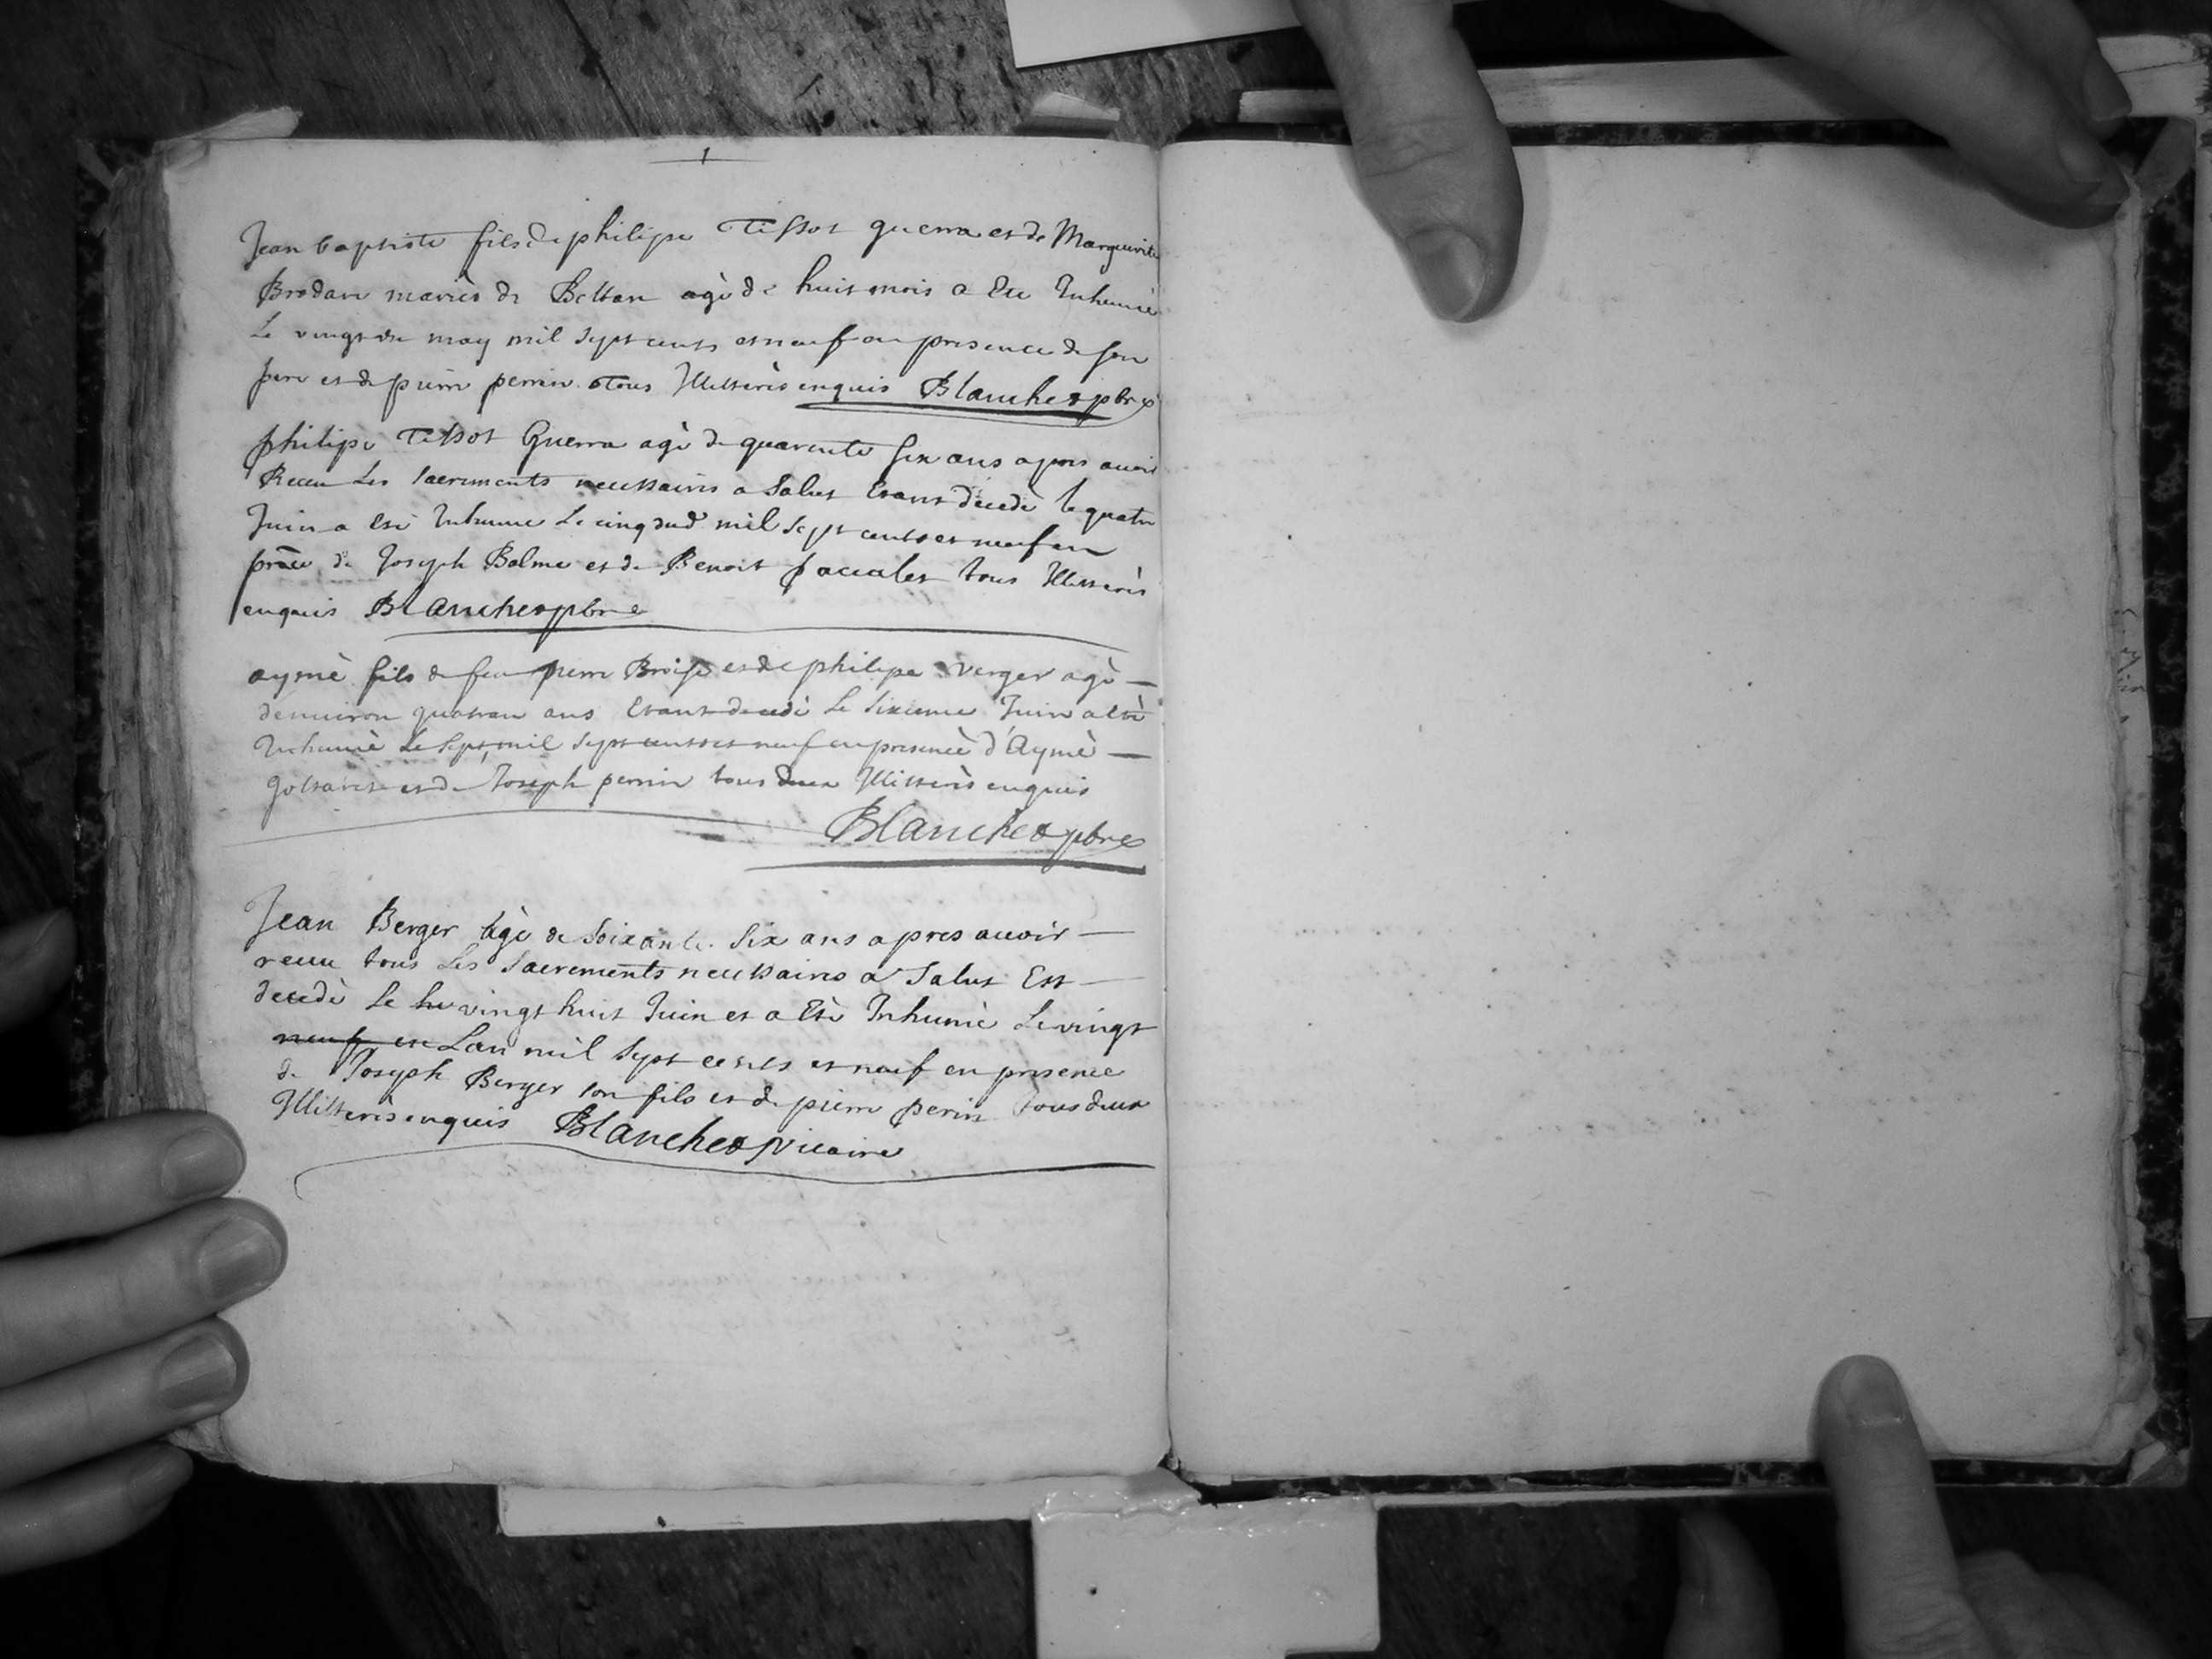 Jean baptiste fils de philipe Tissot guerra et de Marguerite
Brodare mariès de Bettan agè de huit mois a Ete Inhumè
Le vingt du may mil sept cents et neuf en presence de son
pere et de pierre perrin tous Illitterès enquis Blanchet pbre
philipe Tissot Guerra agè de quarente six ans apres avoir
Receu Les sacrements necessaires a Salut Etant decedè le quatre
Juin a etè Inhume Le cinq dud mil sept cents et neuf en
prãce de Joseph Balme et de Benoit tous Illitterès
enquis Blanchet pbre
aymè fils de feu pierre Broise et de philipe verger agè
denuiron quatre ans Etant decedè Le sixieme Juin a etè
Inhumè Le sept, mil sept cents et neuf en presence d'Aymè
et de Joseph perrin tous deux Illitterès enquis
Blanchet pbre
Jean Berger agè de Soixante Six ans apres avoir
receu tous Les Sacrements necessaires a Salut Est
decedè Le hu vingt huit Juin et a Etè Inhumè Le vingt
neuf en Lan mil Sept cents et neuf en presence
de Joseph Berger son fils et de pierre perin tous deux
Illitterès enquis Blanchet Vicaire